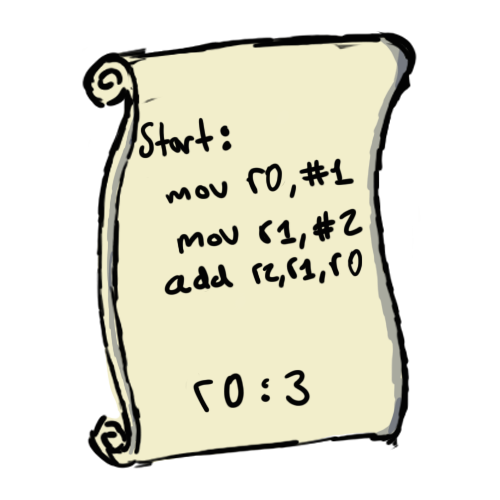 Start:
mov r0,#1
mov r1,#2
add r2,r1,r0
r0:3